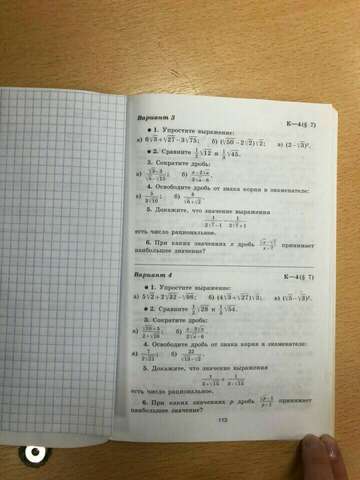 Вариант 3
К—4 (§ 7)
● 1. Упростите выражение:
а) 6√3 + √27 − 3√75; б) (√50 − 2√2)√2; в) (2 − √3)².
● 2. Сравните √12 и √45.
3. Сократите дробь:
а) б)
4. Освободите дробь от знака корня в знаменателе:
а) б)
5. Докажите, что значение выражения
1/(2√7 − 1) − 1/(2√7 + 1)
есть число рациональное.
6. При каких значениях x дробь принимает
наибольшее значение?
Вариант 4
К—4 (§ 7)
● 1. Упростите выражение:
а) 5√2 + 2√32 − √98; б) (4√3 + √27)√3; в) (√5 − √3)².
● 2. Сравните √28 и √54.
3. Сократите дробь:
а) б)
4. Освободите дробь от знака корня в знаменателе:
а) б)
5. Докажите, что значение выражения
есть число рациональное.
6. При каких значениях p дробь принимает
наибольшее значение?
113